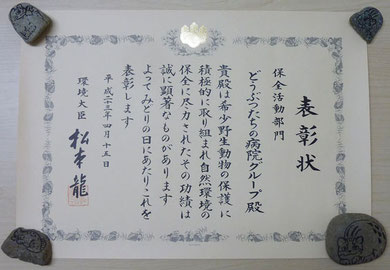 表彰状
保全活動部門
どうぶつたちの病院グループ殿
貴殿は希少野生動物の保護に
積極的に取り組まれ自然環境の
保全に尽力されたその功績は
誠に顕著なものがあります
よってみどりの日にあたりこれを
表彰します
平成二十三年四月十五日
環境大臣
松本龍